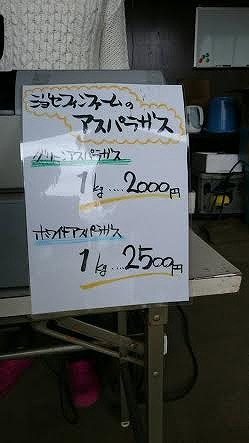 ジョセフィンファームの
アスパラガス
グリーンアスパラガス
1kg....2000円
ホワイトアスパラガス
1kg....2500円